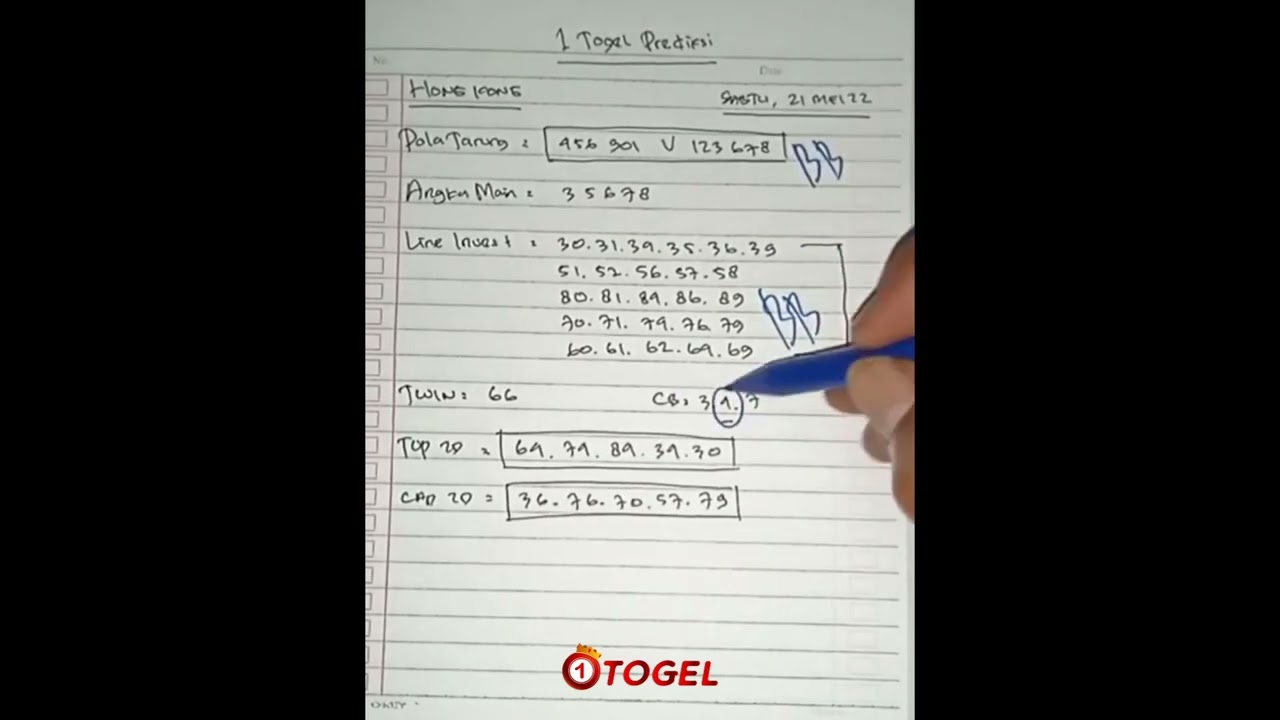 1 Togel Prediksi
No
Date
HONGKONG
SABTU, 21 MEI 22
Pola Tarung : 456 901 V 123 678 BB
Angka Main : 3 5 6 7 8
Line Invest : 30. 31. 34. 35. 36. 39
51. 52. 56. 57. 58
80. 81. 84. 86. 89
70. 71. 74. 76 79
BB
60. 61. 62. 64. 69
TWIN : 66
CB : 3 4. 7
TOP 2D = 64. 74. 84. 34. 30
CAD 2D = 36. 76. 70. 57. 79
1TOGEL
OKEY